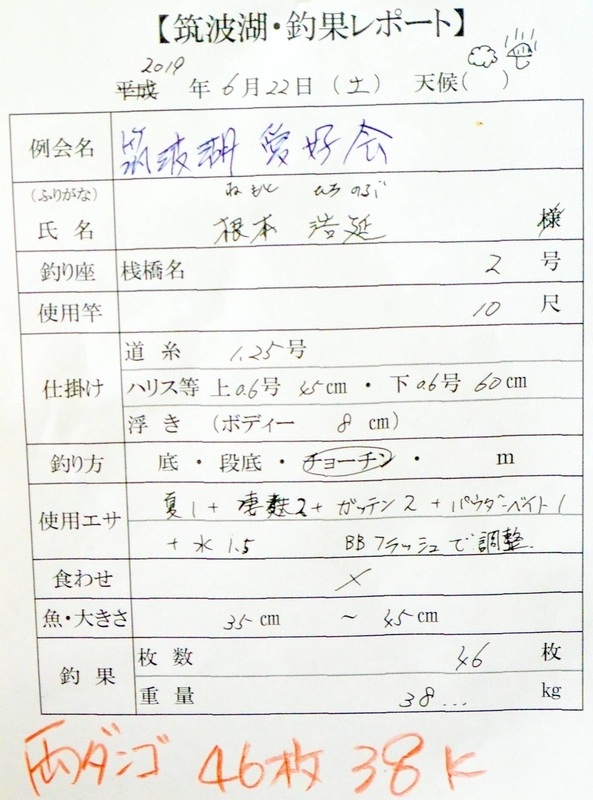 【筑波湖・釣果レポート】
2019
平成 年 6月 22日 (土) 天候( )
例会名 筑波湖 愛好会
(ふりがな) ねもと ひろのぶ
氏名 根本 浩延 様
釣り座 桟橋名 2 号
使用竿 10 尺
仕掛け
道糸 1.25号
ハリス等 上 0.6号 45cm ・ 下 0.6号 60cm
浮き (ボディー 8 cm)
釣り方 底 ・ 段底 ・ チョーチン ・ m
使用エサ
夏1 + 凄麩2 + ガッテン2 + パウダーベイト1
+ 水 1.5 BBフラッシュで調整.
食わせ ×
魚・大きさ 35cm ～ 45cm
釣果
枚数 46 枚
重量 38... kg
両ダンゴ 46枚 38K